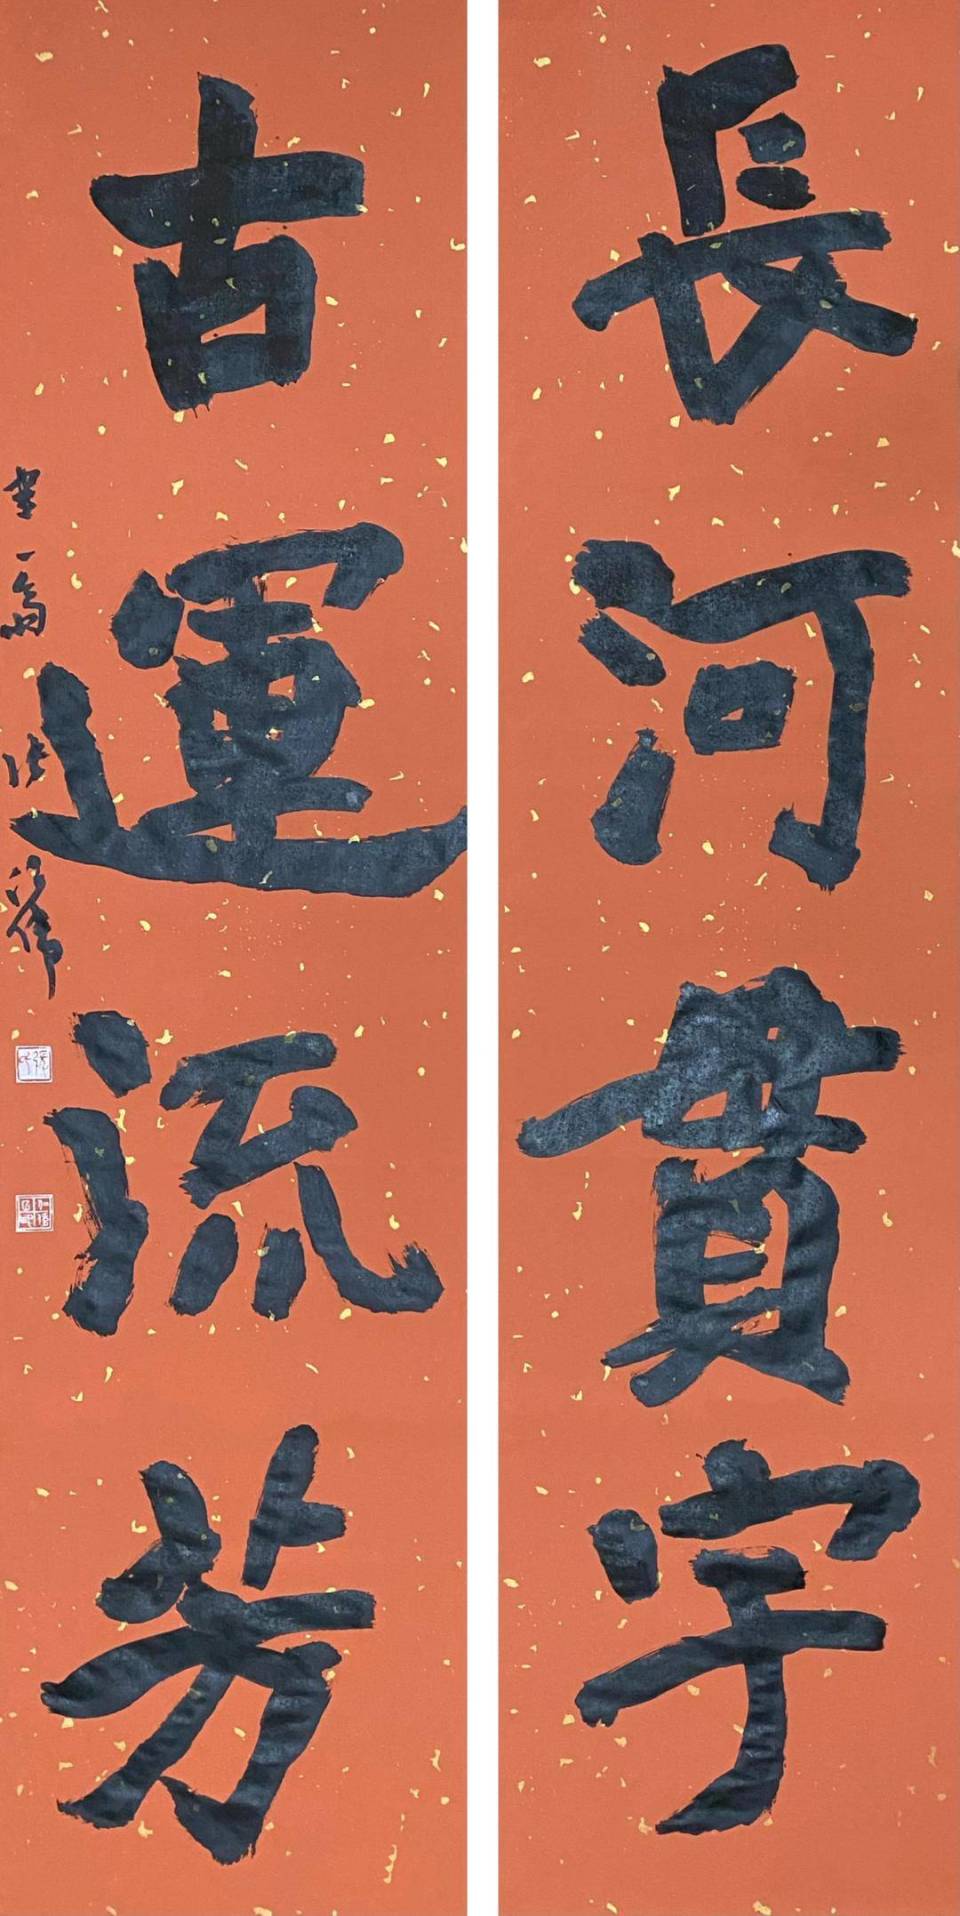 長河貫宇
古運流芳